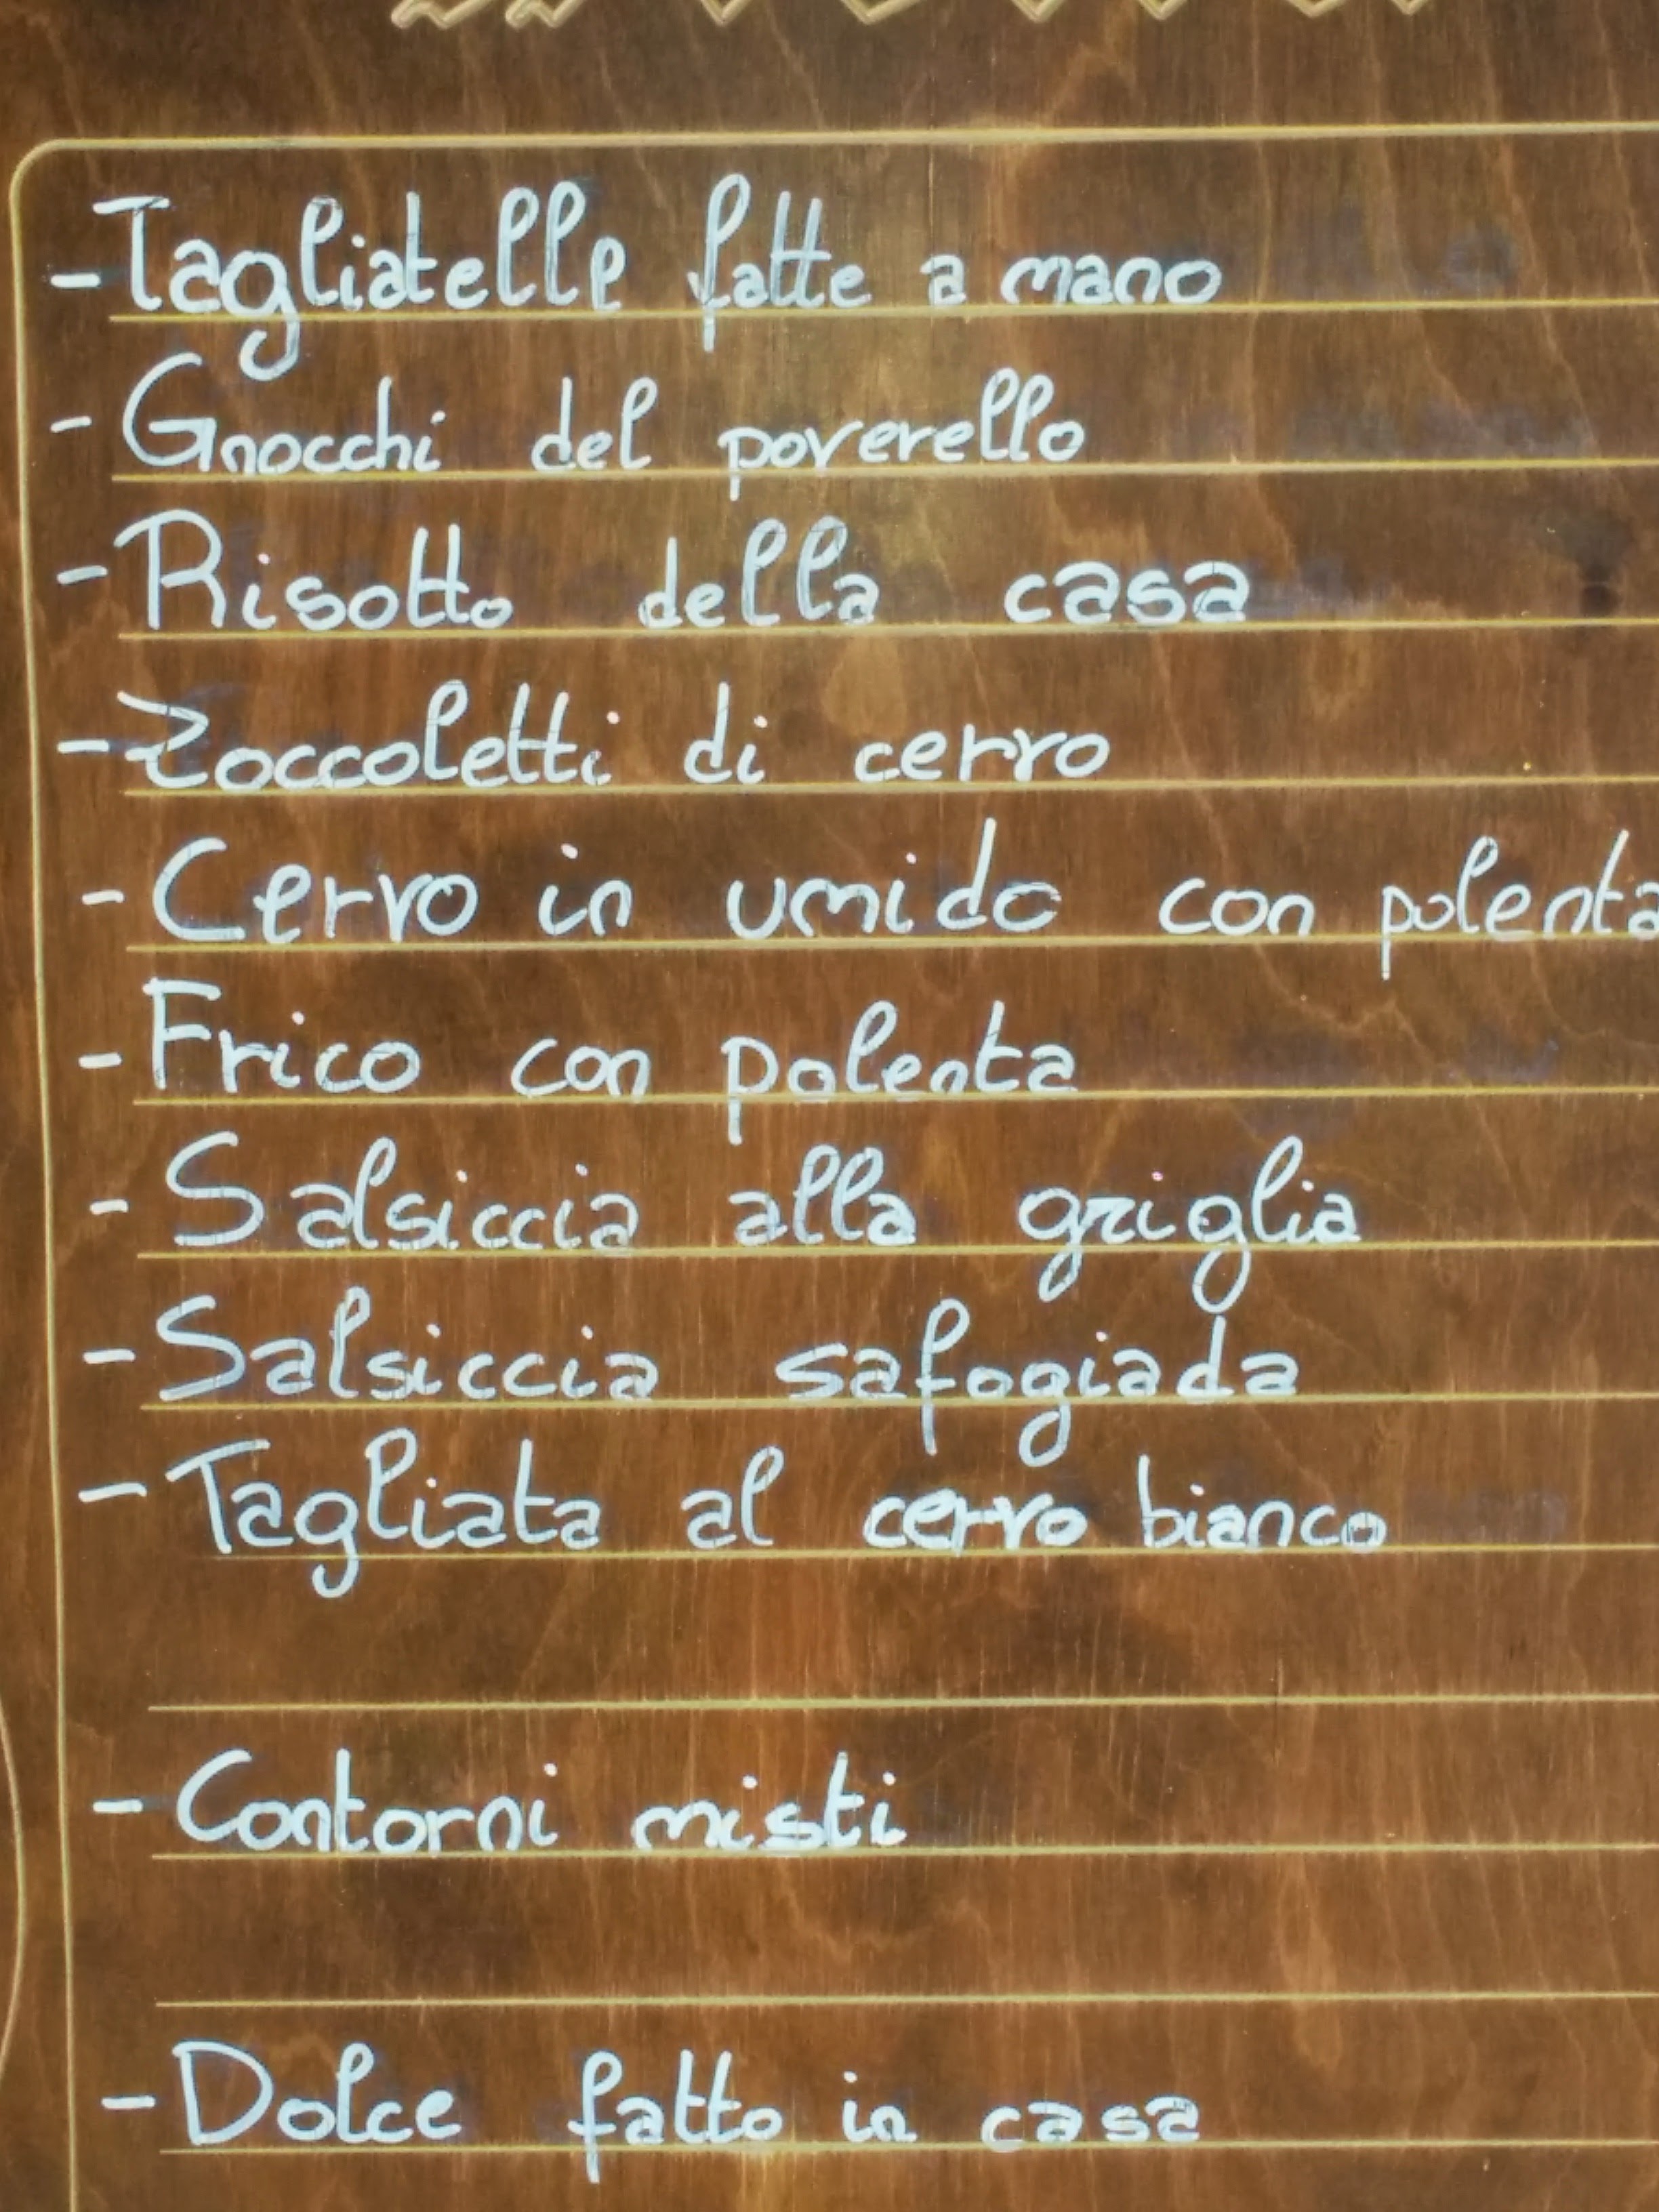 - Tagliatelle fatte a mano
- Gnocchi del poverello
- Risotto della casa
- Zoccoletti di cervo
- Cervo in umido con polenta
- Frico con polenta
- Salsiccia alla griglia
- Salsiccia safogiada
- Tagliata al cervo bianco
- Contorni misti
- Dolce fatto in casa